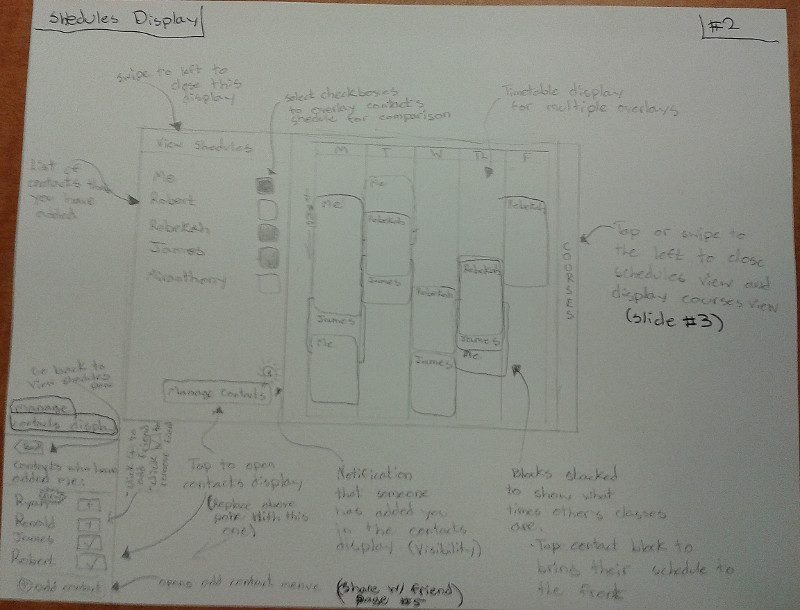 Shedules Display
#2
swipe to left to
close this
display
select checkboxes
to overlay contacts
shedule for comparison
Timetable display
for multiple overlays
View Shedules
List of
contacts that
you have
added
Me
Robert
Rebekah
James
Miranthony
M T W Th F
Me
James
Me
Me
Rebekah
James
Rebekah
James
Rebekah
James
Me
Rebekah
COURSES
Tap or swipe to
the left to close
schedules view and
display courses view
(slide #3)
Manage Contacts
Go back to
View Shedules
manage
contacts display
contacts who have
added me:
Ryan
Ronald
James
Robert
add contact
click + to
add friend
Tap to open
contacts display
(Replace above
pane with this
one)
Notification
that someone
has added you
in the contacts
display (Visibility)
Blocks stacked
to show what
times others classes
are.
• Tap contact block to
bring their schedule to
the front
opens add contact menue
(share w/ friend)
page #5